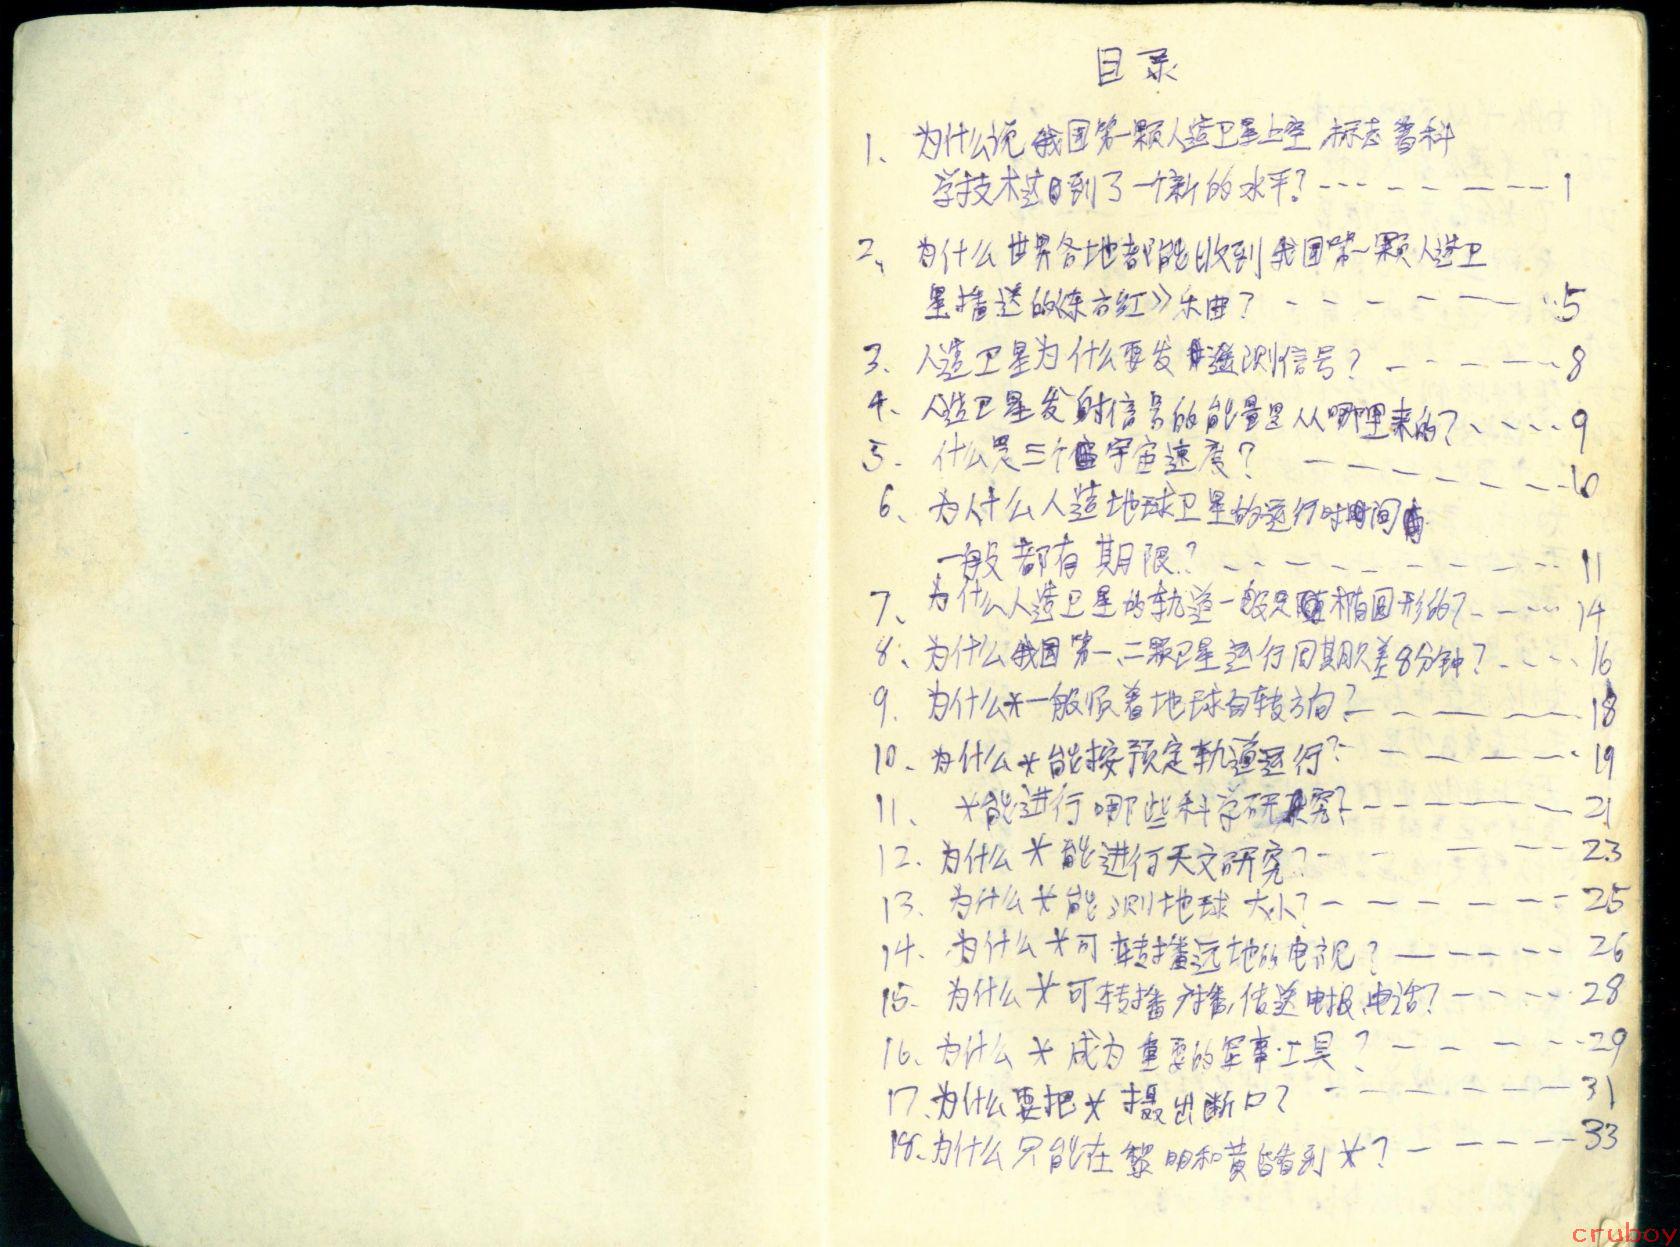 目录
1、为什么说我国第一颗人造卫星上空标志着科
学技术达到了一个新的水平？------1
2、为什么世界各地都能收到我国第一颗人造卫
星播送的《东方红》乐曲？------5
3、人造卫星为什么要发遥测信号？----8
4、人造卫星发射信号的能量是从哪里来的？----9
5、什么是三个宇宙速度？------10
6、为什么人造地球卫星的运行时间
一般都有期限？------11
7、为什么人造卫星的轨道一般是椭圆形的？----14
8、为什么我国第一、二颗卫星运行周期欠差8分钟？----16
9、为什么*一般顺着地球自转方向？-----18
10、为什么*能按预定轨道运行？-----19
11、*能进行哪些科学研究？------21
12、为什么*能进行天文研究？-----23
13、为什么*能测地球大小？------25
14、为什么*可转播远地的电视？-----26
15、为什么*可转播广播,传送电报,电话？----28
16、为什么*成为重要的军事工具？-----29
17、为什么要把* 出断口？------31
18、为什么只能在黎明和黄昏看到*？-----33
cruboy